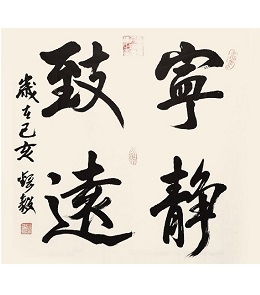 寧靜
致遠
歲在己亥
毅